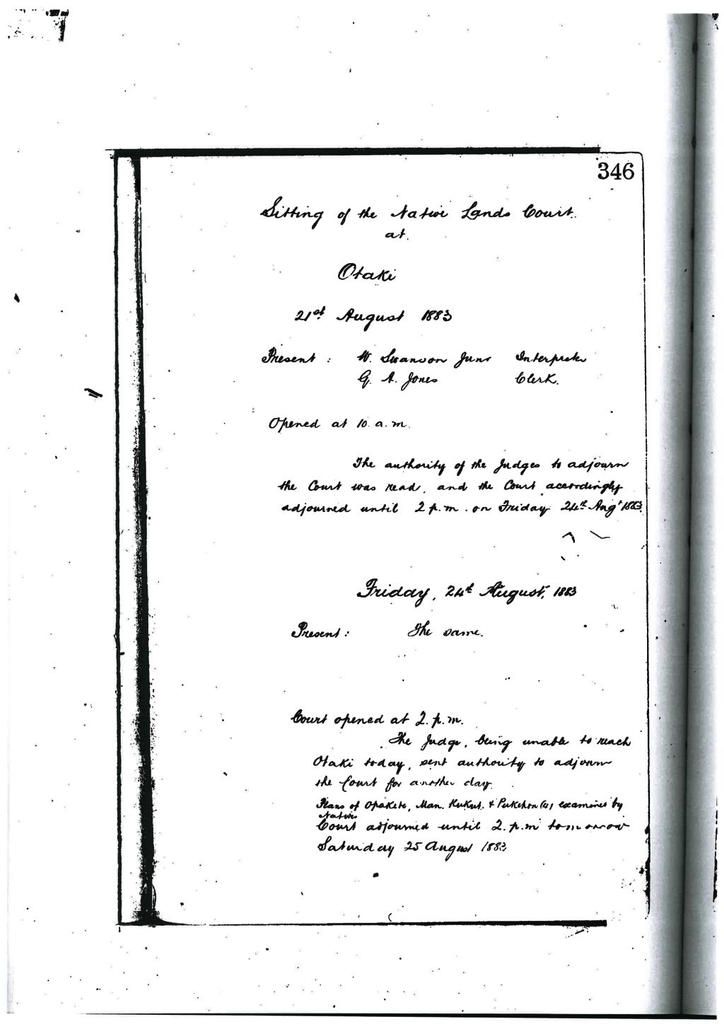 346
Sitting of the Native Lands Court
at
Otaki
21st August 1883
Present : W. Swanson Junr Interpreter
G. A. Jones Clerk.
Opened at 10 a.m.
The authority of the Judges to adjourn
the Court was read, and the Court accordingly
adjourned until 2 p.m. on Friday 24th Augt 1883
Friday, 24th August, 1883
Present : The same.
Court opened at 2.p.m.
The Judge, being unable to reach
Otaki today, sent authority to adjourn
the Court for another day.
Plans of Man. & examined by
Natives
Court adjourned until 2.p.m tomorrow
Saturday 25 August 1883